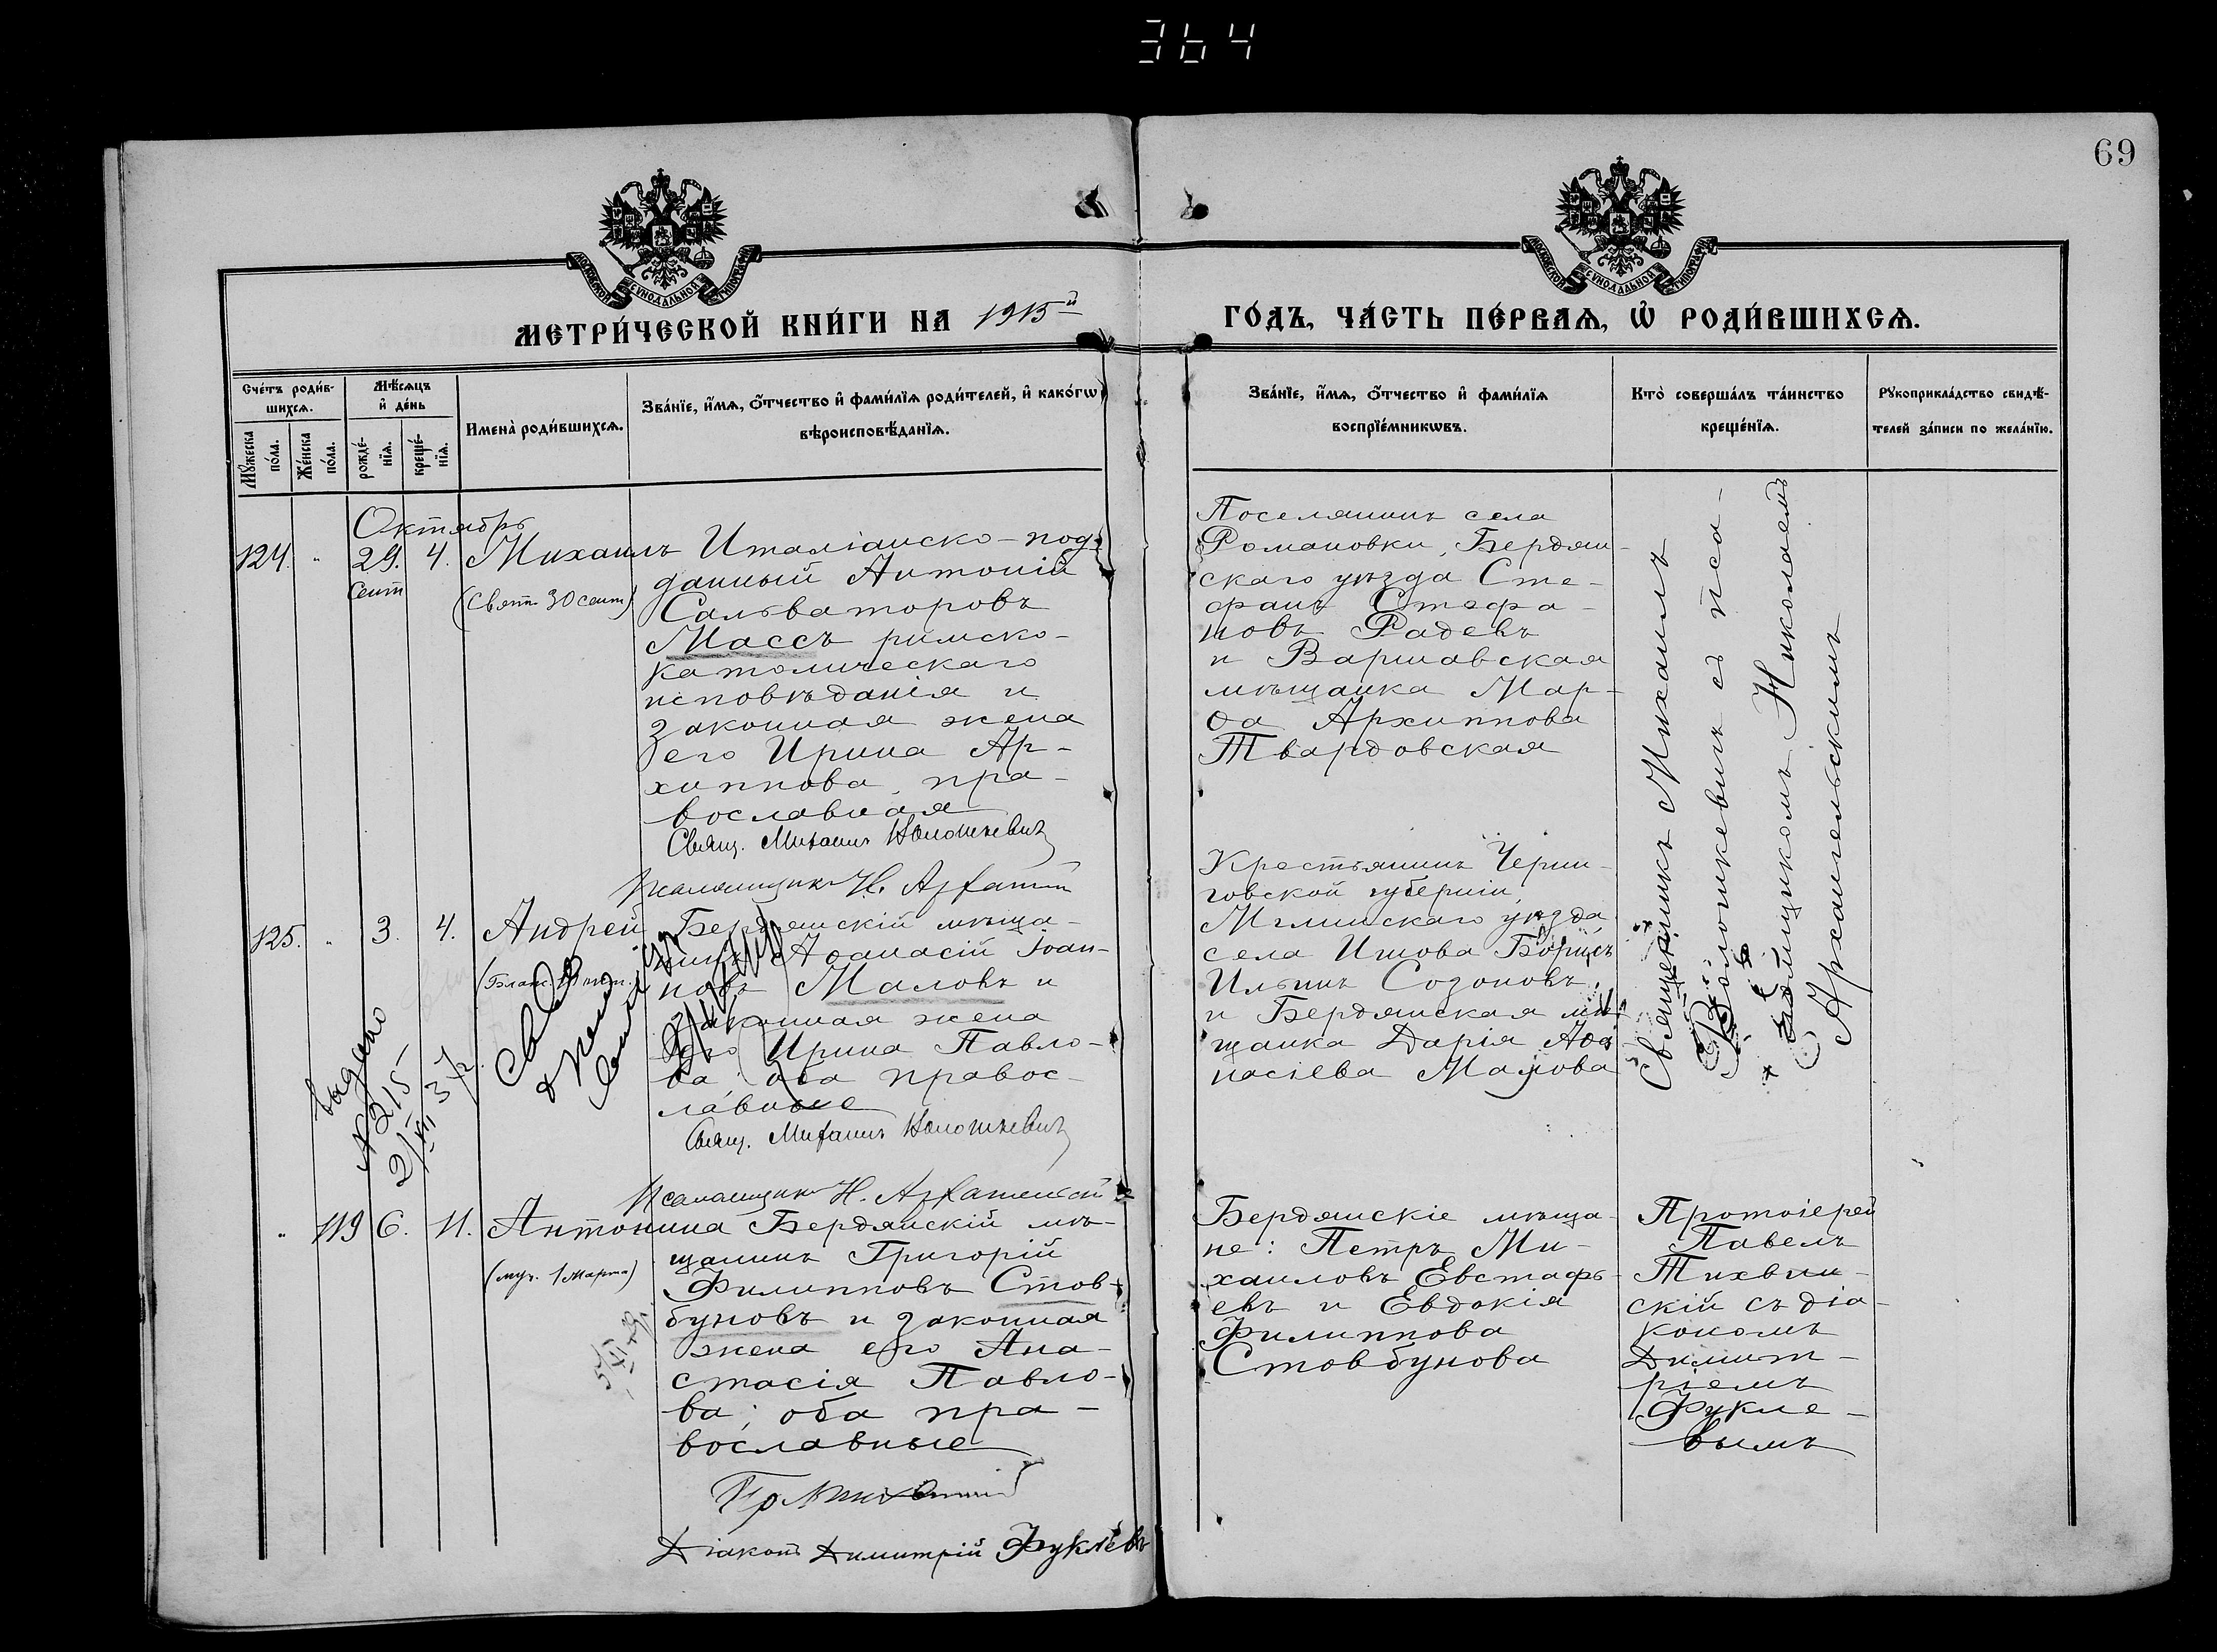 364
69
МОСКОВСКОЙ СѴНОДАЛЬНОЙ ТИПОГРАФІИ
МОСКОВСКОЙ СѴНОДАЛЬНОЙ ТИПОГРАФІИ
МЕТРИ́ЧЕСКОЙ КНИ́ГИ НА 1915й
ГО́ДЪ, ЧА́СТЬ ПЕ́РВАѦ, Ѡ҆ РОДИ́ВШИХСѦ.
Сче́тъ роди́в-
шихсѧ.
Мꙋ́жеска
по́ла.
Же́нска
по́ла.
Мѣ́сѧцъ
и҆ де́нь
рожде́-
нїѧ.
креще́-
нїѧ.
Имена̀ роди́вшихсѧ.
Зва́нїе, и҆́мѧ, ѻ҆́тчество и҆ фами́лїѧ роди́телей, и҆ како́гѡ
вѣроисповѣ́данїѧ.
Зва́нїе, и҆́мѧ, ѻ҆́тчество и҆ фами́лїѧ
воспрїе́мникѡвъ.
Кто̀ соверша́лъ та́инство
креще́нїѧ.
Рꙋкоприкла́дство свидѣ́-
телей за́писи по жела́нїю.
Октябрь
124. " 29. 4. Михаилъ
Сент
(Свят. 30 сент)
Италіанско-под-
данный Антоній
Сальваторовъ
Массъ римско-
католическаго
исповѣданія и
законная жена
его Ирина Ар-
хиппова, пра-
вославная
Свящ. Михаилъ Колошкевичъ
Псаломщикъ Н.
Поселянинъ села
Романовки, Бердян-
скаго уѣзда Сте-
фанъ Стефа-
новъ Радевъ
и Варшавская
мѣщанка Мар-
ѳа Архиппова
Твардовская
Священникъ Михаилъ
Колошкевичъ съ псa-
ломщикомъ Николаемъ
Архангельскимъ
125. " 3. 4. Андрей
Бердянскій мѣща-
нинъ Аѳанасій Іоан-
новъ Маловъ и
законная жена
его Ирина Павло-
ва; оба правос-
лавные
Свящ. Михаилъ Колошкевичъ
Псаломщикъ Н.
выдано
№ 215
2/XII 37 г.
Крестьянинъ Черни-
говской губерніи,
Мглинскаго уѣзда
села Ишова Борисъ
Ильинъ Созоновъ,
и Бердянская мѣ-
щанка Дарія Аѳа
насіева Малова
" 119 6. 11. Антонина
(муч. 1 Марта)
Бердянскій мѣ-
щанинъ Григорій
Филипповъ Стов-
буновъ и законная
жена его Ана-
стасія Павло-
ва; оба пра-
вославные
Діаконъ Димитрій Фуклевъ
Бердянскіе мѣща-
не: Петръ Ми-
хаиловъ Евстафь-
евъ и Евдокія
Филиппова
Стовбунова
Протоіерей
Павелъ
Тихвин-
скій съ діа-
кономъ
Димит-
ріемъ
Фукле-
вымъ